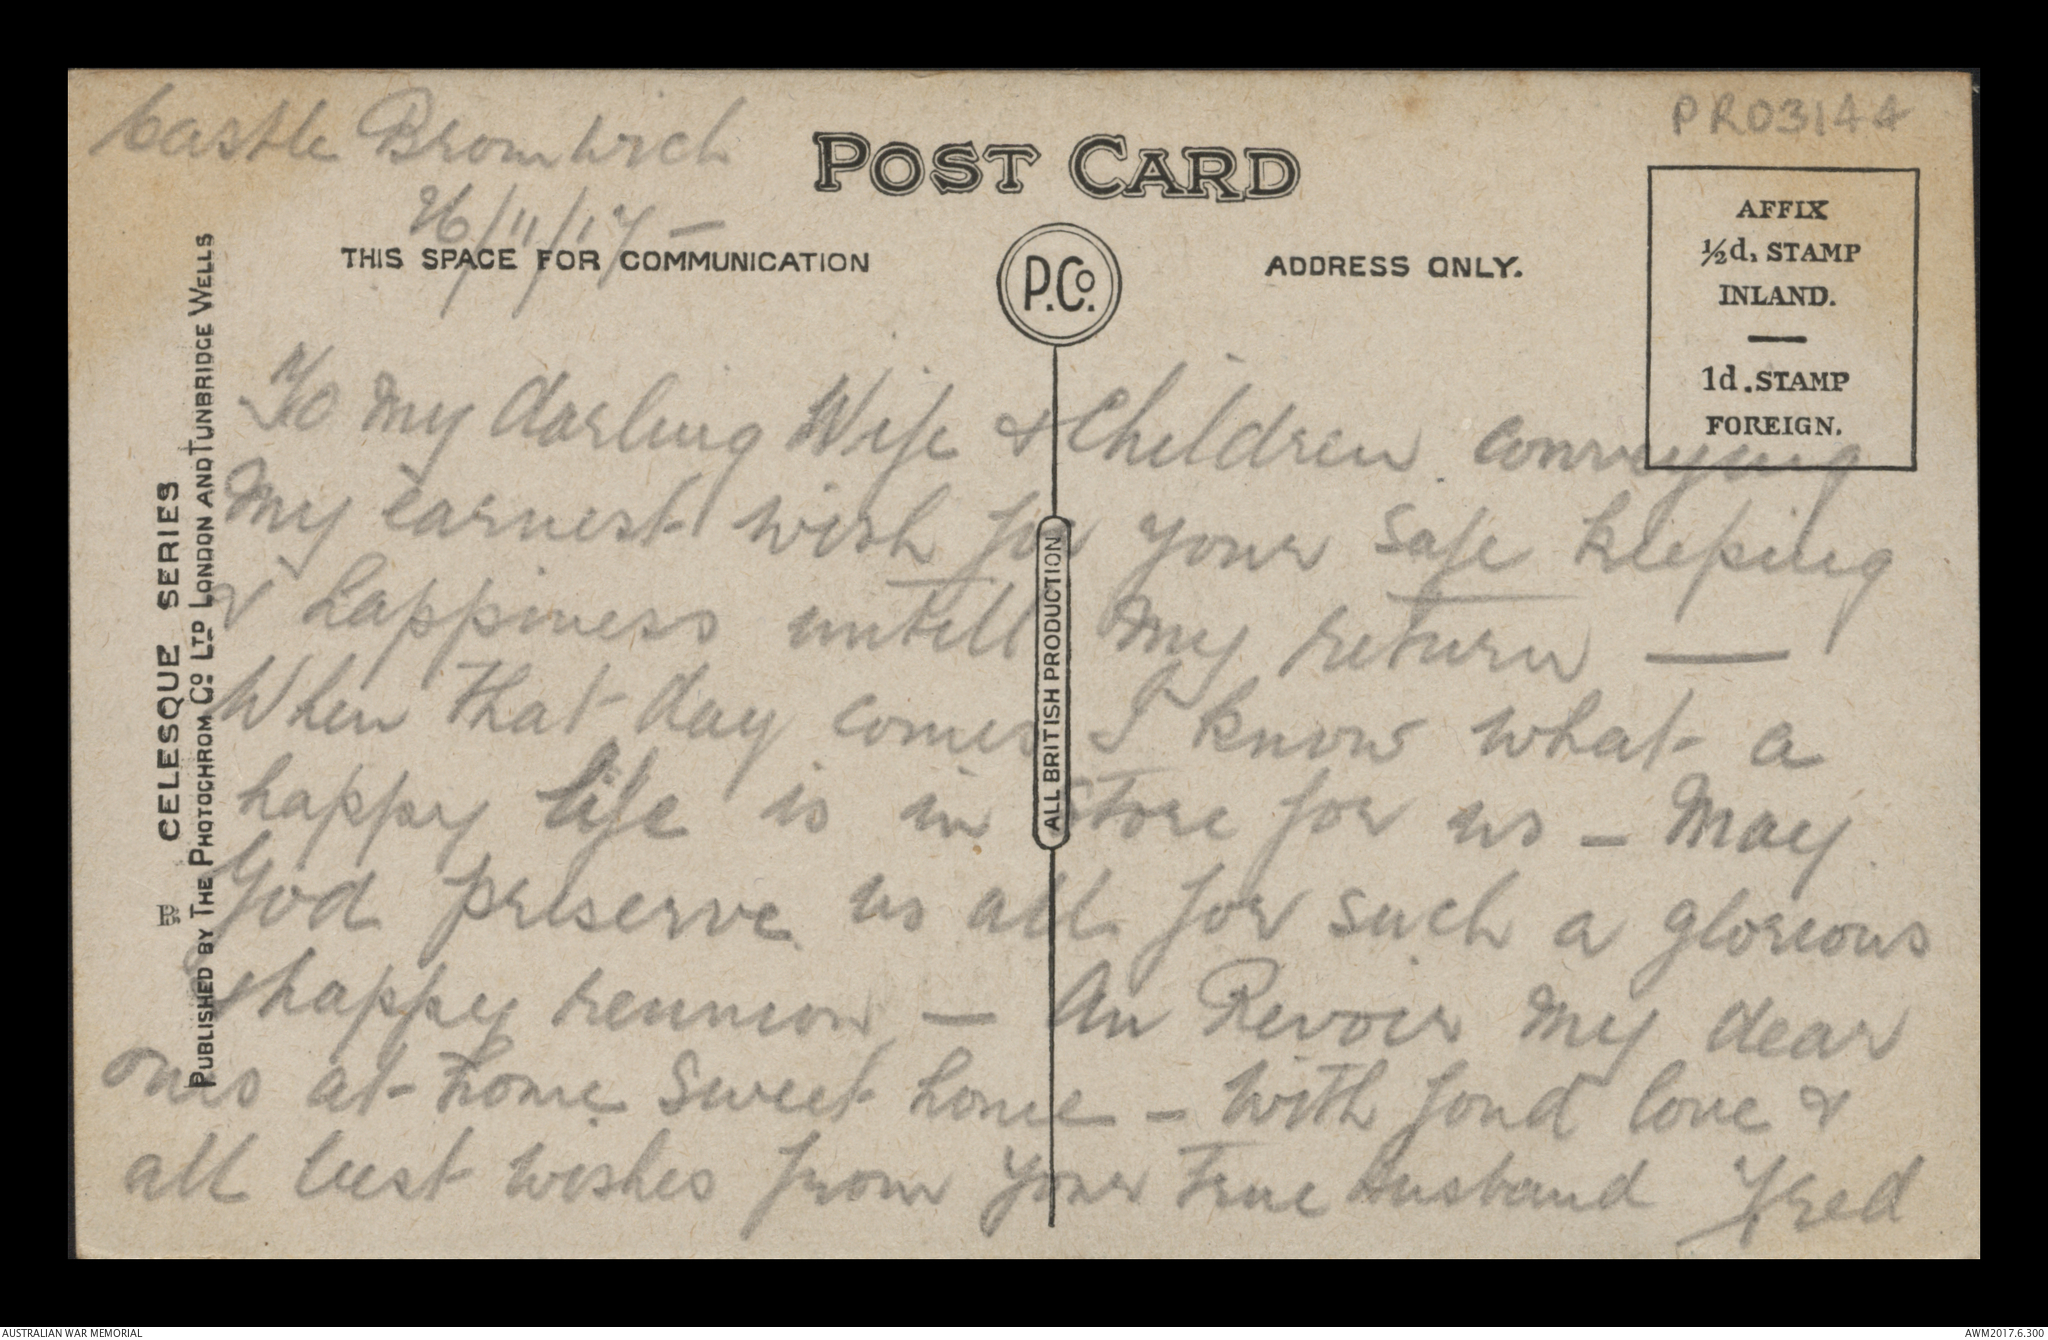 Castle Bromwich
PR03144
POST CARD
26/11/17 –
AFFIX
½d. STAMP
INLAND.
1d. STAMP
FOREIGN.
THIS SPACE FOR COMMUNICATION
P.Co.
ADDRESS ONLY.
To My darling Wife & Children conveying
My earnest wish for your safe keeping
& happiness untill My return —
When that day comes I know what a
happy life is in store for us – May
God preserve us all for such a glorious
& happy reunion — Au Revoir My dear
ones at home sweet home – With fond love &
all best wishes from your True Husband Fred
CELESQUE SERIES
PUBLISHED BY THE PHOTOCHROM CO. LTD. LONDON AND TUNBRIDGE WELLS
ALL BRITISH PRODUCTION
AUSTRALIAN WAR MEMORIAL
AWM2017.6.300